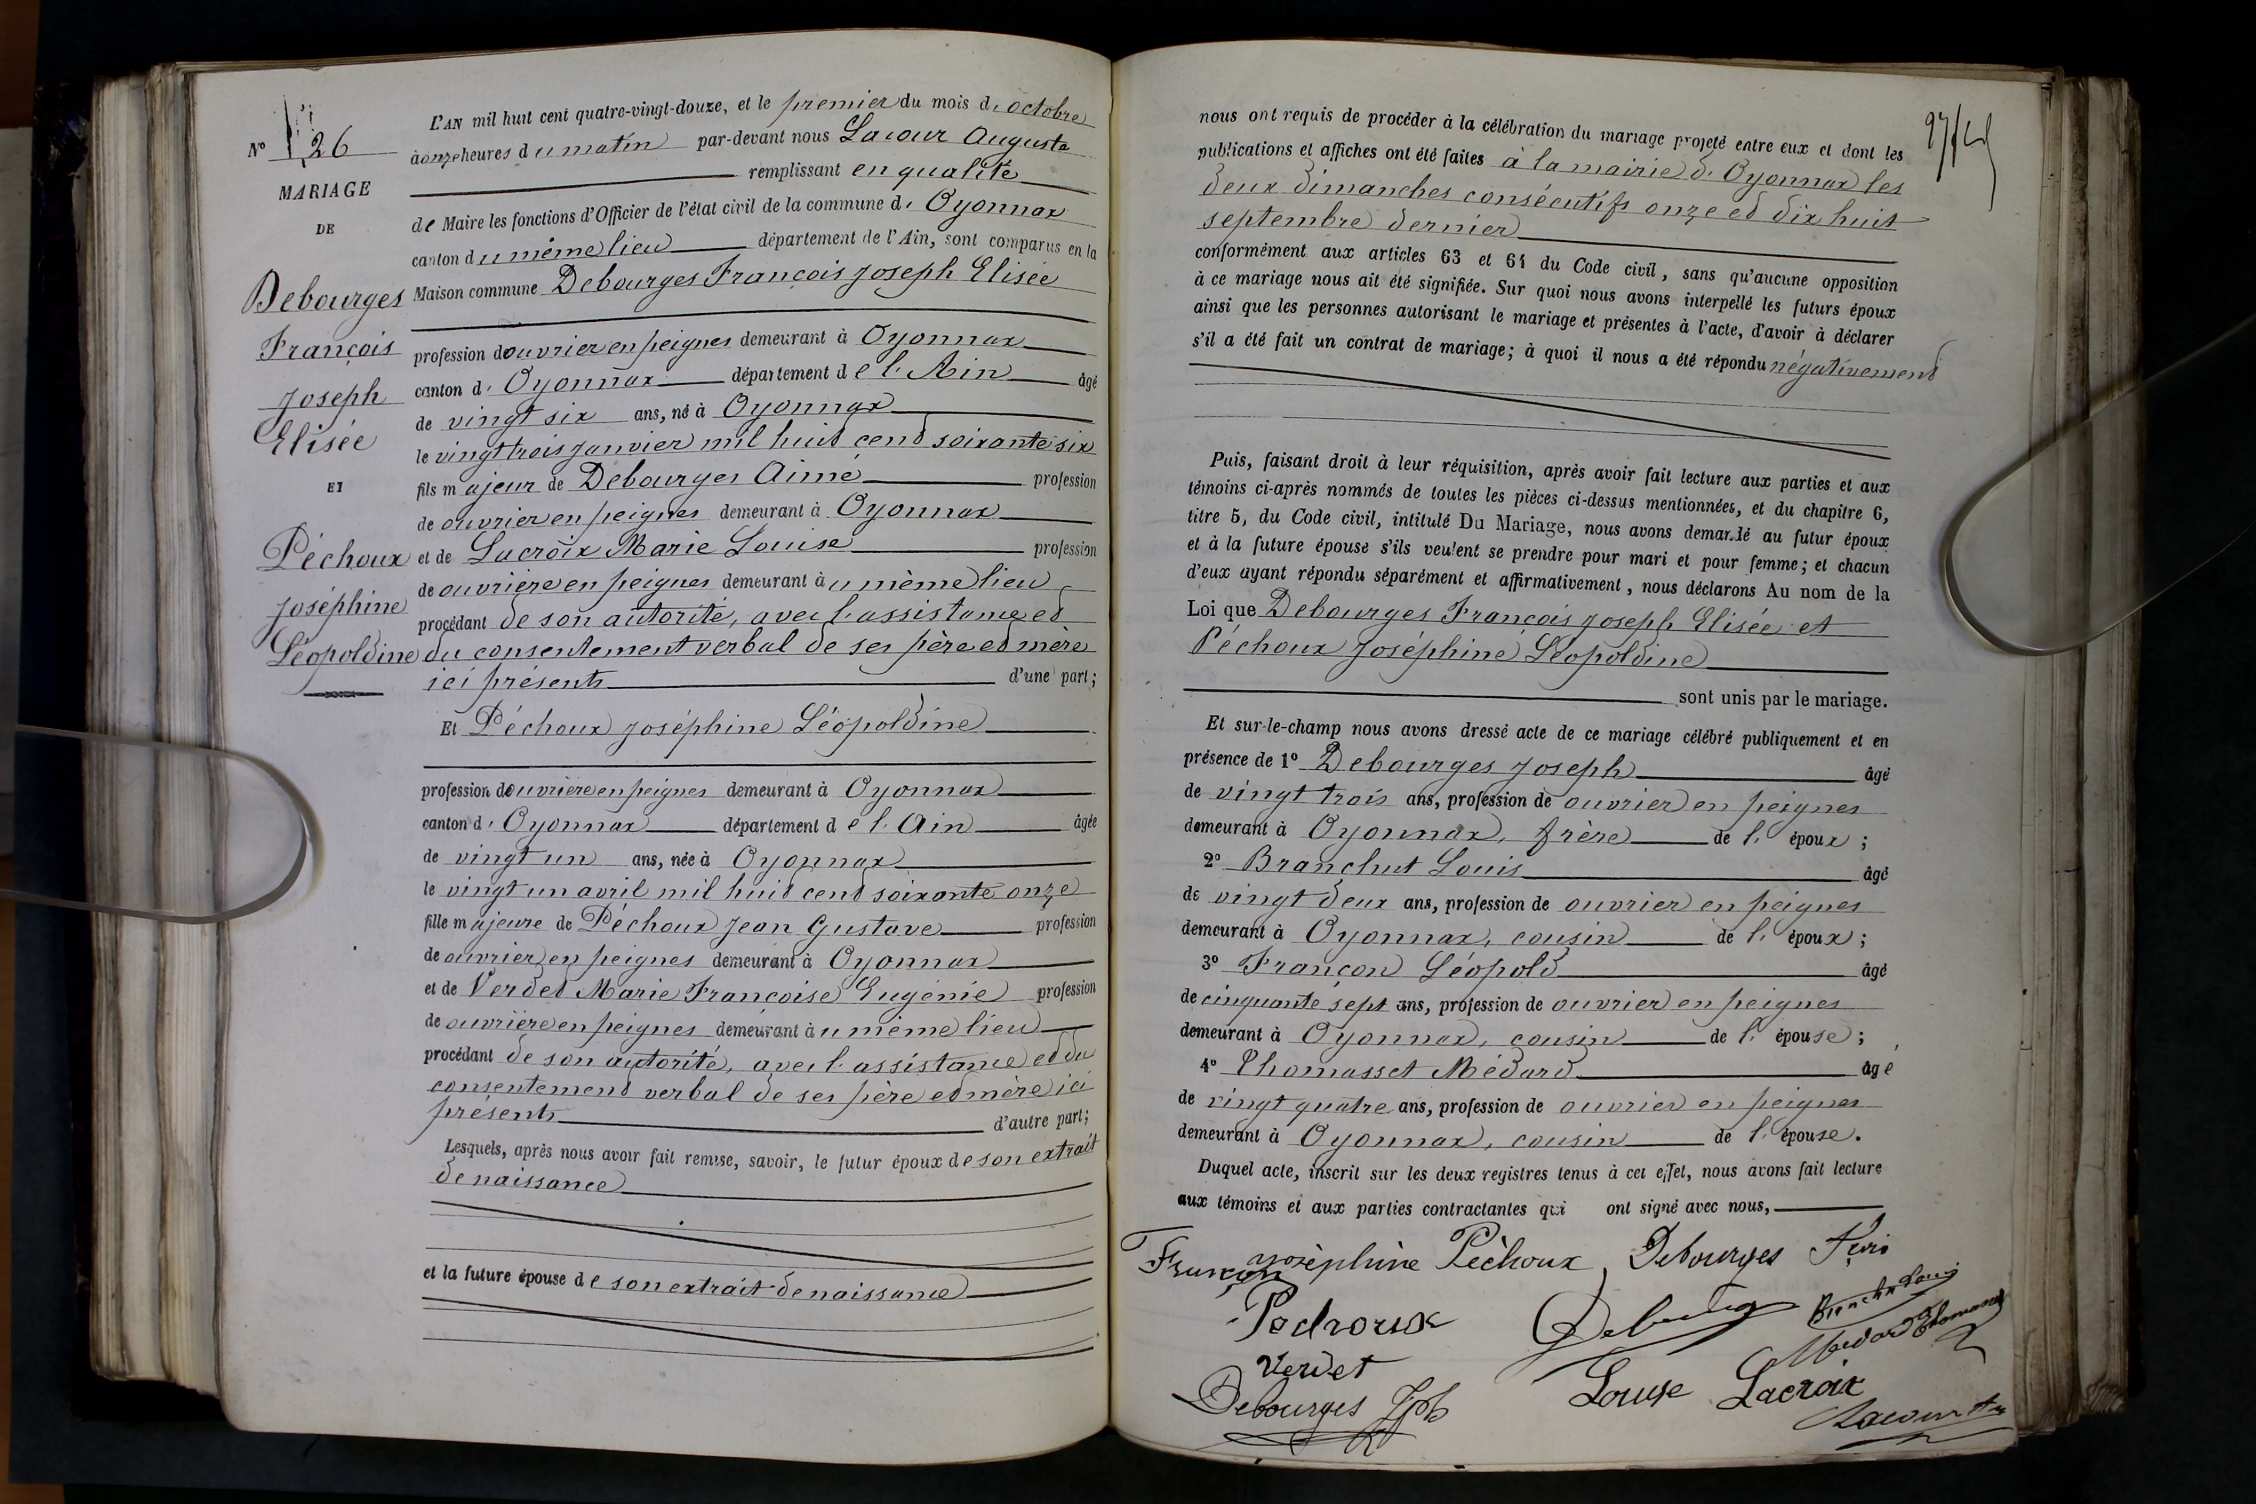 N° 26
MARIAGE
DE
Debourges
François
Joseph
Elisée
ET
Péchoux
Joséphine
Léopoldine
L'AN mil huit cent quatre-vingt-douze, et le premier du mois d'octobre
à onze heures du matin par-devant nous Lacour Auguste
remplissant en qualité
de Maire les fonctions d'Officier de l'état civil de la commune d'Oyonnax
canton du même lieu département de l'Ain, sont comparus en la
Maison commune Debourges François Joseph Elisée
profession d'ouvrier en peignes demeurant à Oyonnax
canton d'Oyonnax département de l'Ain âgé
de vingt six ans, né à Oyonnax
le vingt trois janvier mil huit cent soixante six
fils majeur de Debourges Aimé profession
de ouvrier en peignes demeurant à Oyonnax
et de Lacroix Marie Louise profession
de ouvrière en peignes demeurant au même lieu
procédant de son autorité, avec l'assistance et
du consentement verbal de ses père et mère
ici présents d'une part;
Et Péchoux Joséphine Léopoldine
profession d'ouvrière en peignes demeurant à Oyonnax
canton d'Oyonnax département de l'Ain âgée
de vingt un ans, née à Oyonnax
le vingt un avril mil huit cent soixante onze
fille majeure de Péchoux Jean Gustave profession
de ouvrier en peignes demeurant à Oyonnax
et de Verdet Marie Françoise Eugénie profession
de ouvrière en peignes demeurant au même lieu
procédant de son autorité, avec l'assistance et du
consentement verbal de ses père et mère ici
présents d'autre part;
Lesquels, après nous avoir fait remise, savoir, le futur époux de son extrait
de naissance
et la future épouse de son extrait de naissance
nous ont requis de procéder à la célébration du mariage projeté entre eux et dont les
publications et affiches ont été faites à la mairie d'Oyonnax les
deux dimanches consécutifs onze et dix huit
septembre dernier
conformément aux articles 63 et 64 du Code civil, sans qu'aucune opposition
à ce mariage nous ait été signifiée. Sur quoi nous avons interpellé les futurs époux
ainsi que les personnes autorisant le mariage et présentes à l'acte, d'avoir à déclarer
s'il a été fait un contrat de mariage; à quoi il nous a été répondu négativement
Puis, faisant droit à leur réquisition, après avoir fait lecture aux parties et aux
témoins ci-après nommés de toutes les pièces ci-dessus mentionnées, et du chapitre 6,
titre 5, du Code civil, intitulé Du Mariage, nous avons demandé au futur époux
et à la future épouse s'ils veulent se prendre pour mari et pour femme; et chacun
d'eux ayant répondu séparément et affirmativement, nous déclarons Au nom de la
Loi que Debourges François Joseph Elisée et
Péchoux Joséphine Léopoldine
sont unis par le mariage.
Et sur-le-champ nous avons dressé acte de ce mariage célébré publiquement et en
présence de 1° Debourges Joseph âgé
de vingt trois ans, profession de ouvrier en peignes
demeurant à Oyonnax, frère de l'époux;
2° Branchut Louis âgé
de vingt deux ans, profession de ouvrier en peignes
demeurant à Oyonnax, cousin de l'époux;
3° Françon Léopold âgé
de cinquante sept ans, profession de ouvrier en peignes
demeurant à Oyonnax, cousin de l'épouse;
4° Thomasset Médard âgé
de vingt quatre ans, profession de ouvrier en peignes
demeurant à Oyonnax, cousin de l'épouse.
Duquel acte, inscrit sur les deux registres tenus à cet effet, nous avons fait lecture
aux témoins et aux parties contractantes qui ont signé avec nous,
Françon Joséphine Péchoux Debourges
Verdet
Debourges Jph
Louise Lacroix